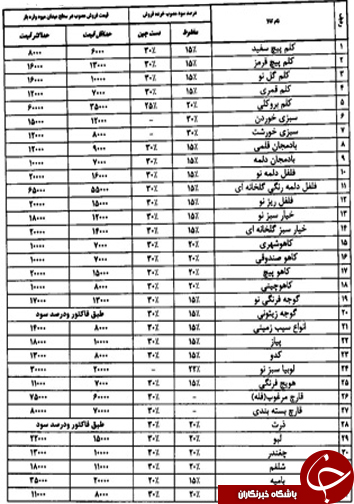 ردیف نام کالا درصد سود مصوب خرده فروش قیمت فروش مصوب در سطح میدان میوه وتره بار
مخلوط دست چین حداقل قیمت حداکثر قیمت
۱ کلم پیچ سفید ۱۵٪ ۳۰٪ ۶۰۰۰ ۸۰۰۰
۲ کلم پیچ قرمز ۱۵٪ ۳۰٪ ۱۳۰۰۰ ۱۶۰۰۰
۳ کلم گل نو ۱۵٪ ۳۰٪ ۱۰۰۰۰ ۱۶۰۰۰
۴ کلم قمری ۱۵٪ ۳۰٪ ۷۰۰۰ ۱۲۰۰۰
۵ کلم بروکلی ۲۰٪ ۲۵٪ ۳۵۰۰۰ ۶۰۰۰۰
۶ سبزی خوردن ۳۰٪ - ۱۲۰۰۰ ۱۵۰۰۰
۷ سبزی خورشت ۳۰٪ - ۸۰۰۰ ۱۲۰۰۰
۸ بادمجان قلمی ۱۵٪ ۳۰٪ ۹۰۰۰ ۱۲۰۰۰
۹ بادمجان دلمه ۱۵٪ ۳۰٪ ۷۰۰۰ ۱۰۰۰۰
۱۰ فلفل دلمه نو ۱۵٪ ۳۰٪ ۱۶۰۰۰ ۲۰۰۰۰
۱۱ فلفل دلمه رنگی گلخانه ای ۱۵٪ ۳۰٪ ۵۵۰۰۰ ۶۵۰۰۰
۱۲ فلفل ریز نو ۱۵٪ ۳۰٪ ۱۵۰۰۰ ۲۰۰۰۰
۱۳ خیار سبز نو ۱۵٪ ۳۰٪ ۱۲۰۰۰ ۱۸۰۰۰
۱۴ خیار سبز گلخانه ای ۱۵٪ ۳۰٪ ۱۴۰۰۰ ۲۰۰۰۰
۱۵ کاهوشهری ۲۰٪ ۳۰٪ ۷۰۰۰ ۱۰۰۰۰
۱۶ کاهو صندوقی ۲۰٪ ۳۰٪ ۷۰۰۰ ۱۰۰۰۰
۱۷ کاهو پیچ ۲۰٪ ۳۰٪ ۱۵۰۰۰ ۲۰۰۰۰
۱۸ کاهوچینی ۲۰٪ ۳۰٪ ۸۰۰۰ ۱۰۰۰۰
۱۹ گوجه فرنگی نو ۱۵٪ ۳۰٪ ۱۳۰۰۰ ۱۷۰۰۰
۲۰ گوجه زیتونی ۲۰٪ ۳۰٪ طبق فاکتور ودرصد سود
۲۱ انواع سیب زمینی ۱۵٪ ۳۰٪ ۸۰۰۰ ۱۴۰۰۰
۲۲ پیاز ۱۵٪ ۳۰٪ ۱۰۰۰۰ ۱۸۰۰۰
۲۳ کدو ۱۵٪ ۳۰٪ ۸۰۰۰ ۱۳۰۰۰
۲۴ لوبیا سبز نو ۲۲٪ - ۲۰۰۰۰ ۳۰۰۰۰
۲۵ هویج فرنگی ۱۵٪ ۳۰٪ ۷۰۰۰ ۱۱۰۰۰
۲۶ قارچ مرغوب(فله) - ۳۰٪ ۶۰۰۰۰ ۷۵۰۰۰
۲۷ قارچ بسته بندی - ۳۰٪ ۷۰۰۰۰ ۸۰۰۰۰
۲۸ ذرت ۲۰٪ ۳۰٪ طبق فاکتور ودرصد سود
۲۹ لبو ۲۰٪ ۳۰٪ ۱۵۰۰۰ ۲۲۰۰۰
۳۰ چغندر ۲۰٪ ۳۰٪ ۱۰۰۰۰
۳۱ شلغم ۲۰٪ ۳۰٪ ۱۱۰۰۰ ۱۸۰۰۰
بامیه ۱۵٪ ۲۰٪ ۲۰۰۰۰ ۳۵۰۰۰
۲۰٪ ۳۰٪ ۸۰۰۰ ۱۱۰۰۰
باشگاه خبرنگاران